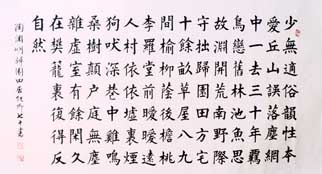 少無適俗韻性本
愛丘山誤落塵網
中一去三十年羈
鳥戀舊林池魚思
故淵開荒南野際
守拙歸園田方宅
十餘畝草屋八九
間榆柳蔭後檐桃
李羅堂前曖曖遠
人村依依墟里煙
狗吠深巷中雞鳴
桑樹顛戶庭無塵
雜虛室有餘閒久
在樊籠裏復得反
自然
陶淵明歸園田居